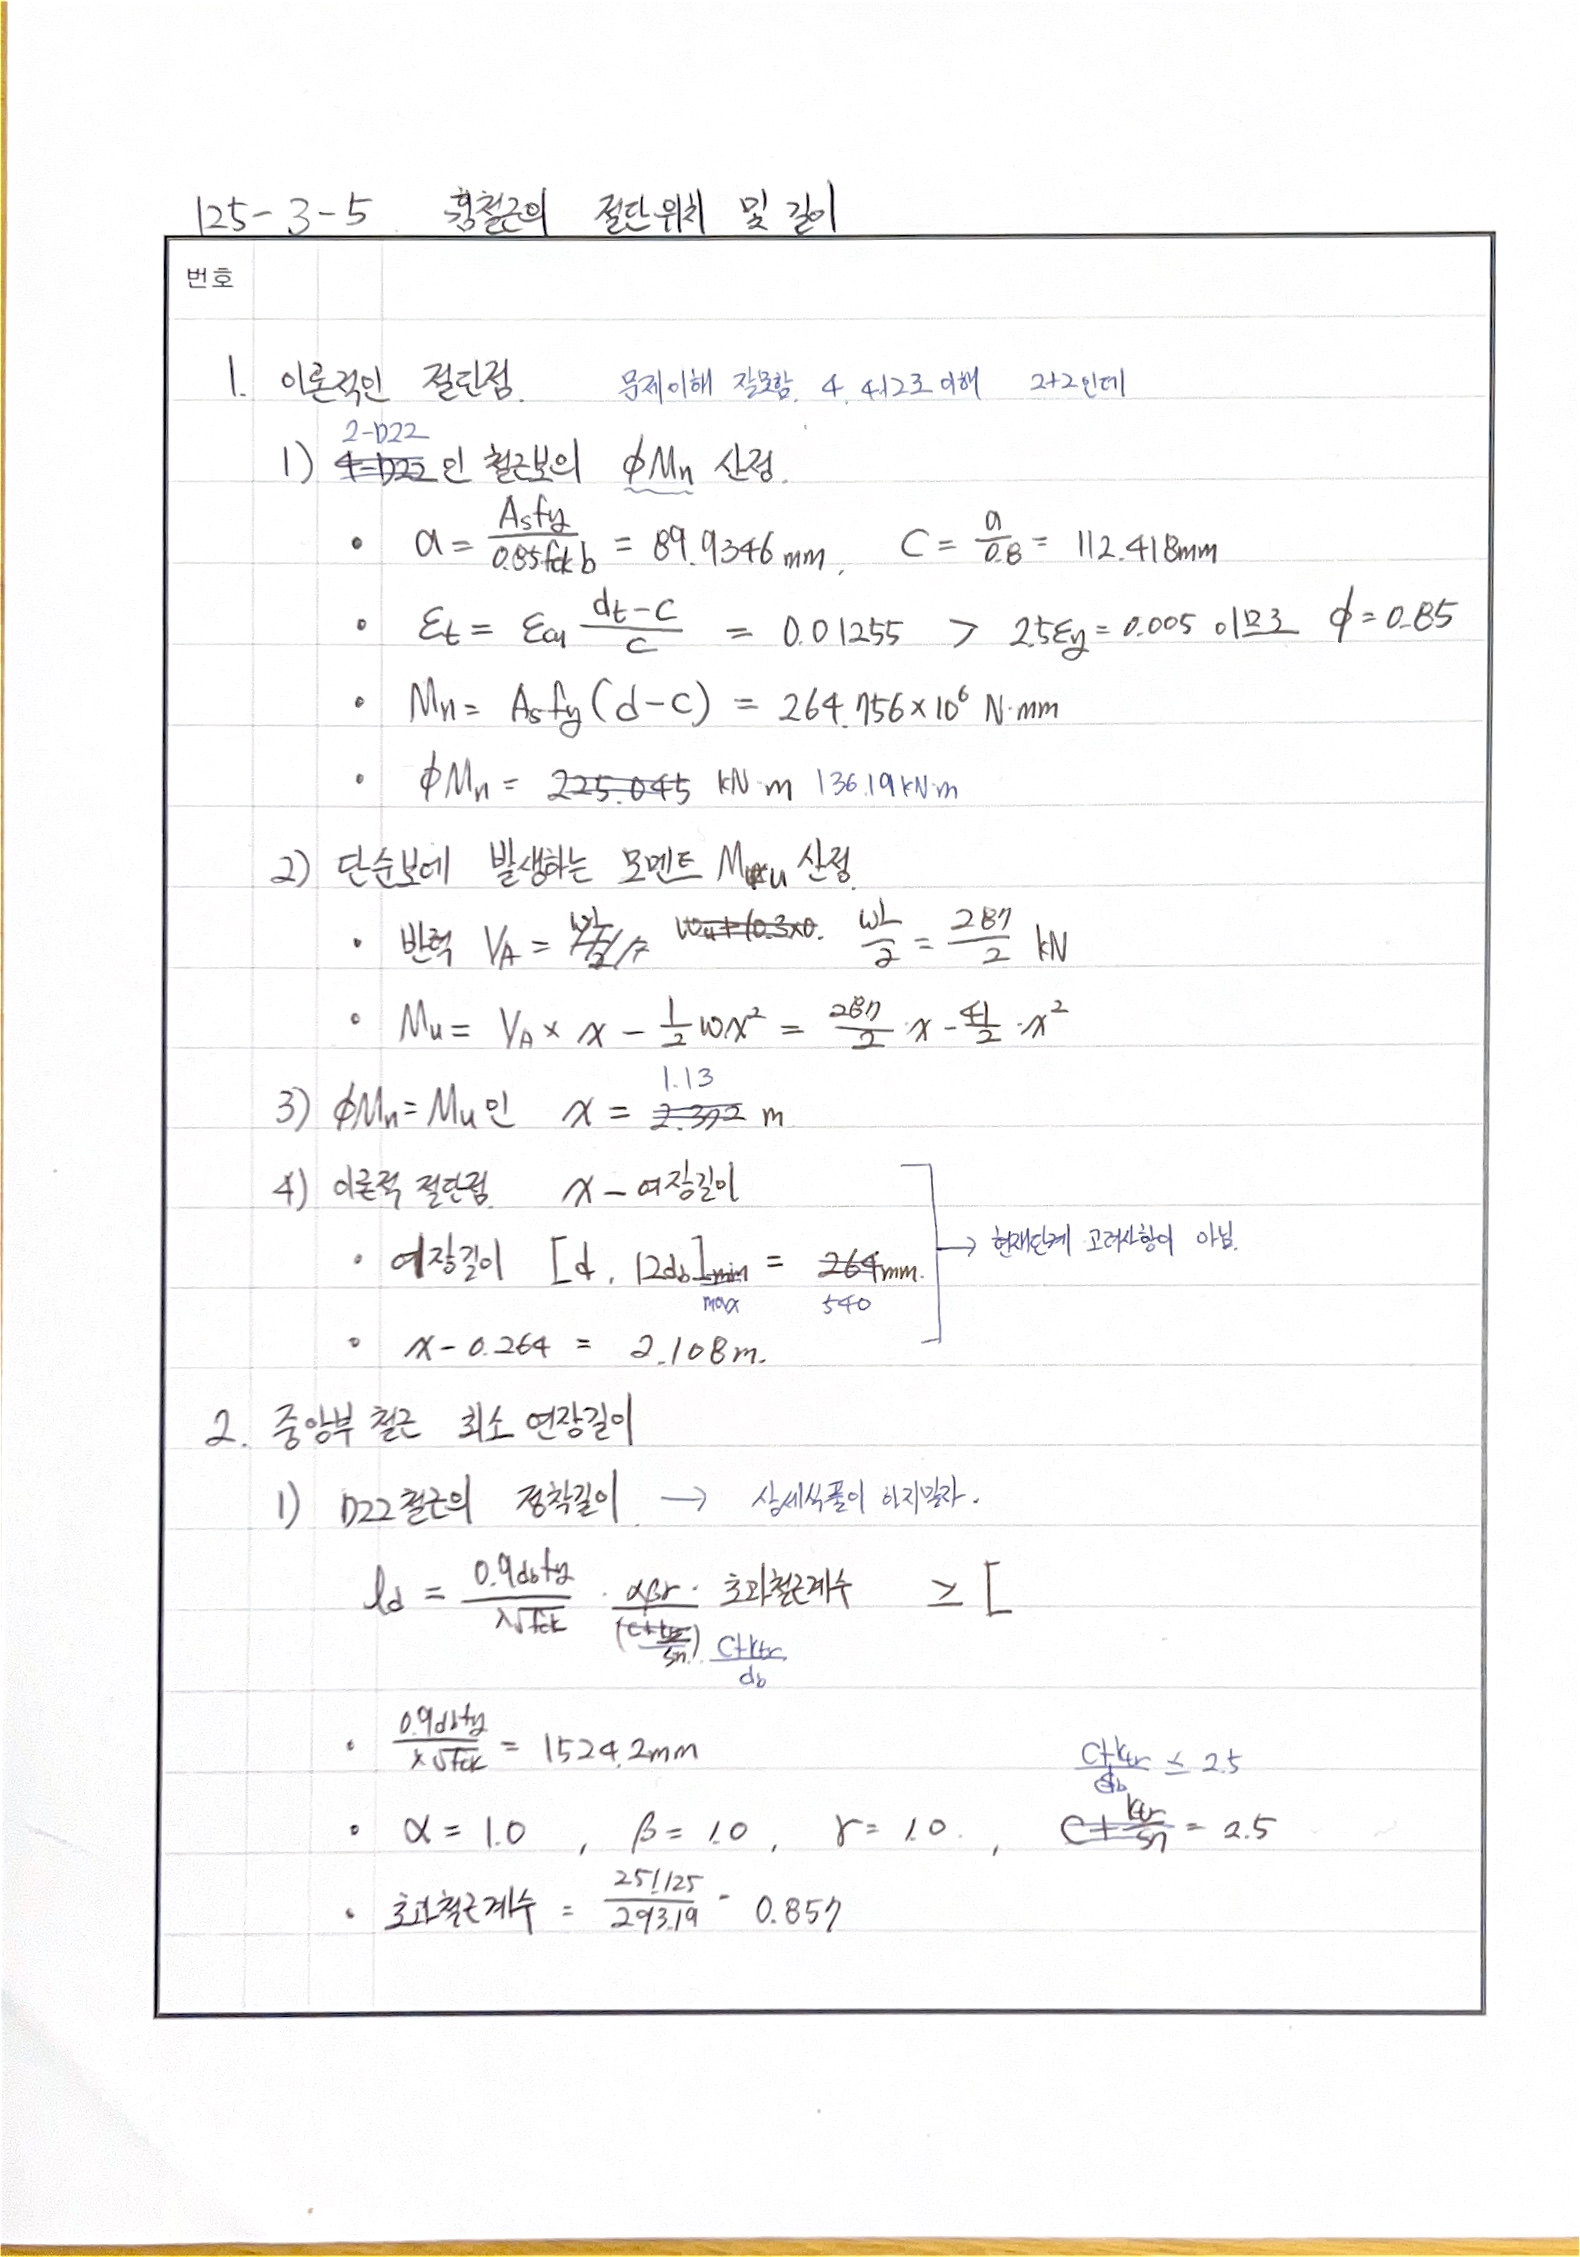 125-3-5 휨철근의 절단위치 및 길이
번호
1. 이론적인 절단점. 문제이해 잘못함. 4, 4인걸로 이해 2+2인데
2-D22
1) 4-D22인 철근보의 ϕMn 산정.
• a = Asfy/0.85fck b = 89.9346mm, c = a/0.8 = 112.418mm
• εt = εcu (dt-c)/c = 0.01255 > 2.5εy = 0.005 이므로 ϕ = 0.85
• Mn = Asfy(d-c) = 264.756×10⁶ N·mm
• ϕMn = 225.045 kN·m 136.19kN·m
2) 단순보에 발생하는 모멘트 Mu 산정.
• 반력 VA = wL/2 = 287/2 kN
• Mu = VA × x - 1/2 wx² = 287/2 · x - 41/2 · x²
1.13
3) ϕMn = Mu인 x = 2.372 m
4) 이론적 절단점. x - 여장길이
• 여장길이 [d, 12db]min = 264mm. → 현재단계 고려사항이 아님.
max 540
• x - 0.264 = 2.108m.
2. 중앙부 철근 최소 연장길이
1) D22철근의 정착길이 → 상세식풀이 하지말자.
ld = 0.9dbfy/λ√fck · αβγ/(c+ktr/sn) · 초과철근계수 ≥ [
c+ktr/db
• 0.9dbfy/λ√fck = 1524.2mm
c+ktr/db ≤ 2.5
• α = 1.0, β = 1.0, γ = 1.0, c+ktr/sn = 2.5
• 초과철근계수 = 251.125/293.19 = 0.857